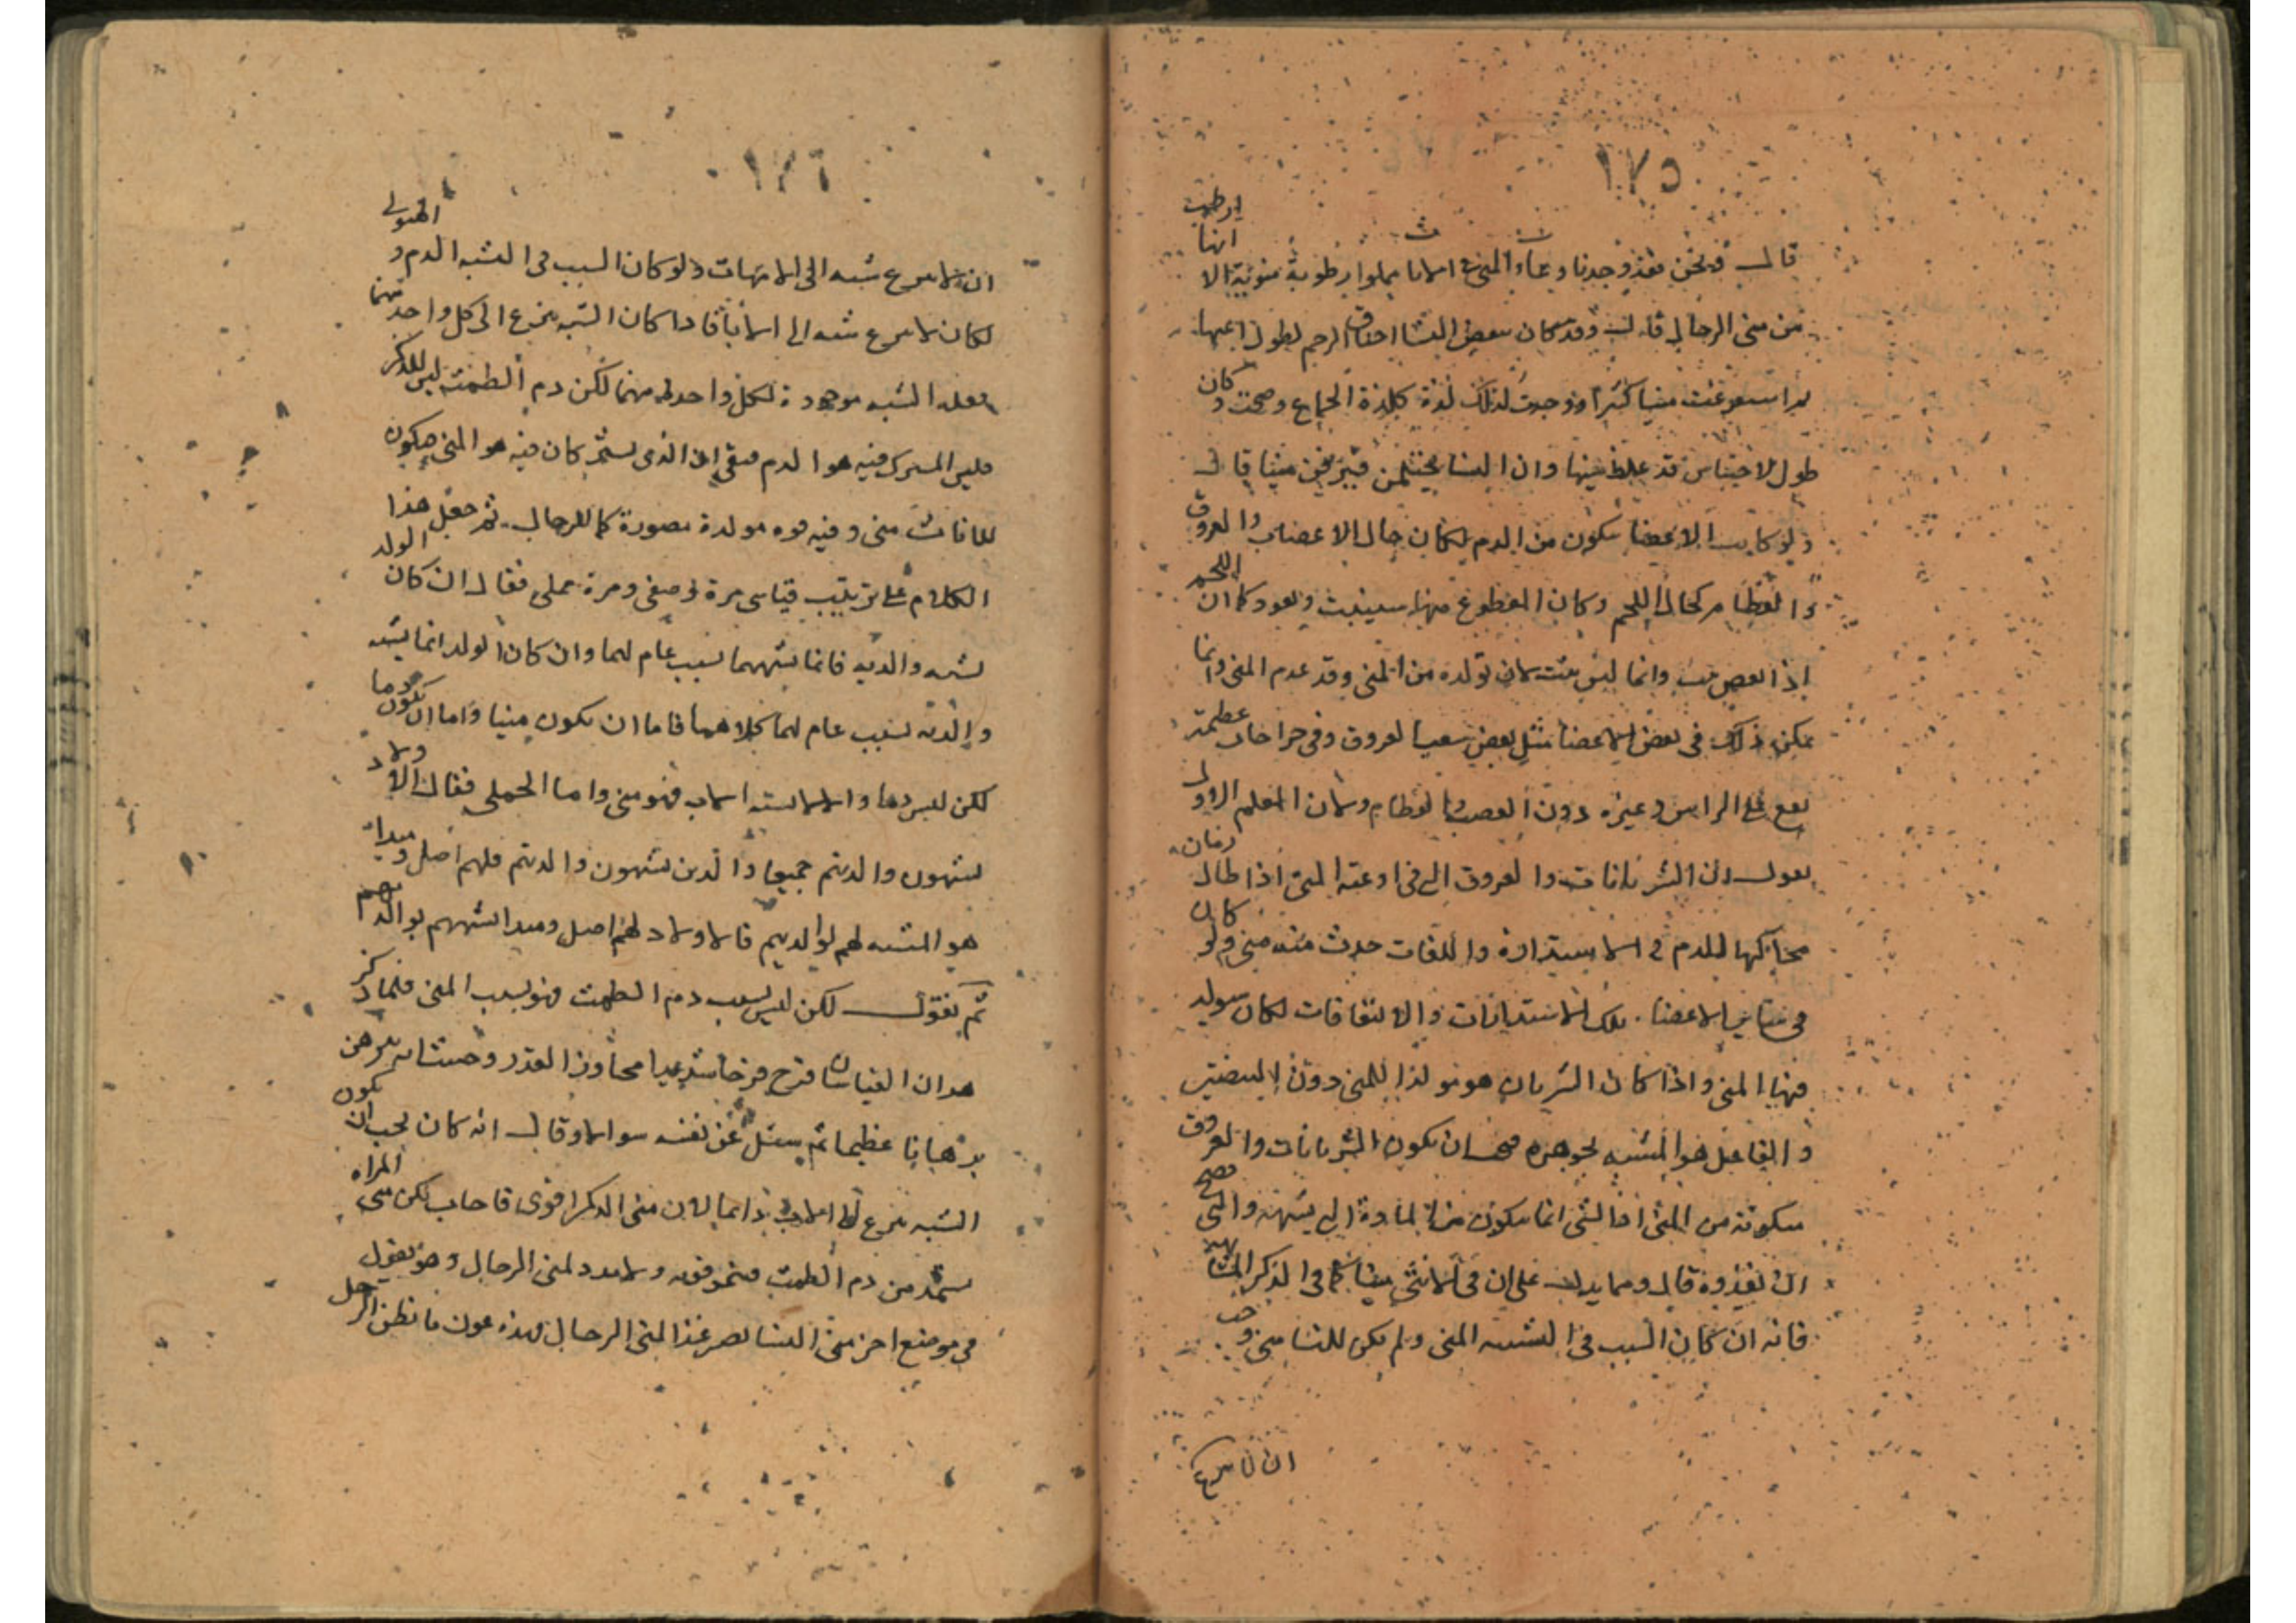 ١٧٥
قال ونحن فقد وجدنا وعاء المنى فى الاناث مملوا رطوبة منوية الا انها ارطب
من منى الرجال قال وقد كان ببعض النسا اختناق الرحم لطول
استفرغت منيا كثيرا ووجدت لذلك لذة كلذة الجماع وصحت وكان
طول الاحتباس قد غلظ منيها وان النسا يحتلمن فيرقن منيا قال
ولو كانت الاعضا تكون من الدم لكان حال الاعصاب والعروق
والعظام كحال اللحم وكان المقطوع منها سينبت ويعود كما ان اللحم
اذا نقص نبت وانما ليس ينبت لان تولده من المنى وقد عدم المنى وانما
يمكن ذلك فى بعض الاعضا مثل بعض شعب العروق وفى جراحات عظيمة
تقع على الراس وغيره دون العصب والعظام ولان المعلم الاول
يقول ان الشريانات والعروق التى فى اوعية المنى اذا طال زمان
للدم فى الاستدارة واللفات حدث منه منى ولو كان
فى سائر الاعضا تلك الاستدارات والالتفافات لكان يتولد
فيها المنى واذا كان الشريان هو مولدا للمنى دون البيضتين
والفاعل هو المشبه بجوهره فيجب ان يكون الشريانات والعروق
متكونة من المنى اذ الشى انما يتكون من المادة التى يشبهه والتى يصح
ان تغذوه قال ومما يدل على ان فى الانثى منيا كما فى الذكر المشابهة
فانه ان كان السبب فى الشبه المنى ولم يكن للنسا منى وجب
ان لا ينزع
١٧٦
ان لا ينزع شبه الى الامهات ولو كان السبب فى الشبه الدم والهيولى
لكان لا ينزع شبه الى الابا فاذا كان الشبه ينزع الى كل واحد منهما
فعلة الشبه موجودة لكل واحد منهما لكن دم الطمث ليس للذكر
فليس المشترك فيه هو الدم فبقى ان الذى يشتركان فيه هو المنى فيكون
للاناث منى وفيه قوة مولدة مصورة كما للرجال ثم جعل هذا
الكلام على ترتيب قياسى مرة وصفى ومرة حملى فقال ان كان الولد
يشبه والديه فانما يشبههما بسبب عام لهما وان كان الولد انما يشبه
والديه بسبب عام لهما كلاهما فاما ان يكون منيا واما ان يكون دما
لكن ليس دما فهو منى واما الحملى فقال الاولاد
يشبهون والديهم جميعا والذين يشبهون والديهم فلهم اصل ومبدا
هو المشبه لهم لوالديهم فالاولاد لهم اصل ومبدا يشبههم بوالديهم
ثم نقول لكن ليس بسبب دم الطمث فهو بسبب المنى فلما ذكر
هذان القياسان فرح فرحا شديدا مجاوزا القدر
برهانا عظيما ثم يسئل عن نفسه سوالا وقال انه كان يجب ان يكون
الشبه ينزع الى الاب دائما لان منى الذكر اقوى فاجاب لكن منى المراه
يستمد من دم الطمث ولامدد لمنى الرجال وهو يقول
فى موضع اخر منى النسا غذا لمنى الرجال فهذه عون ما نظن الرجل